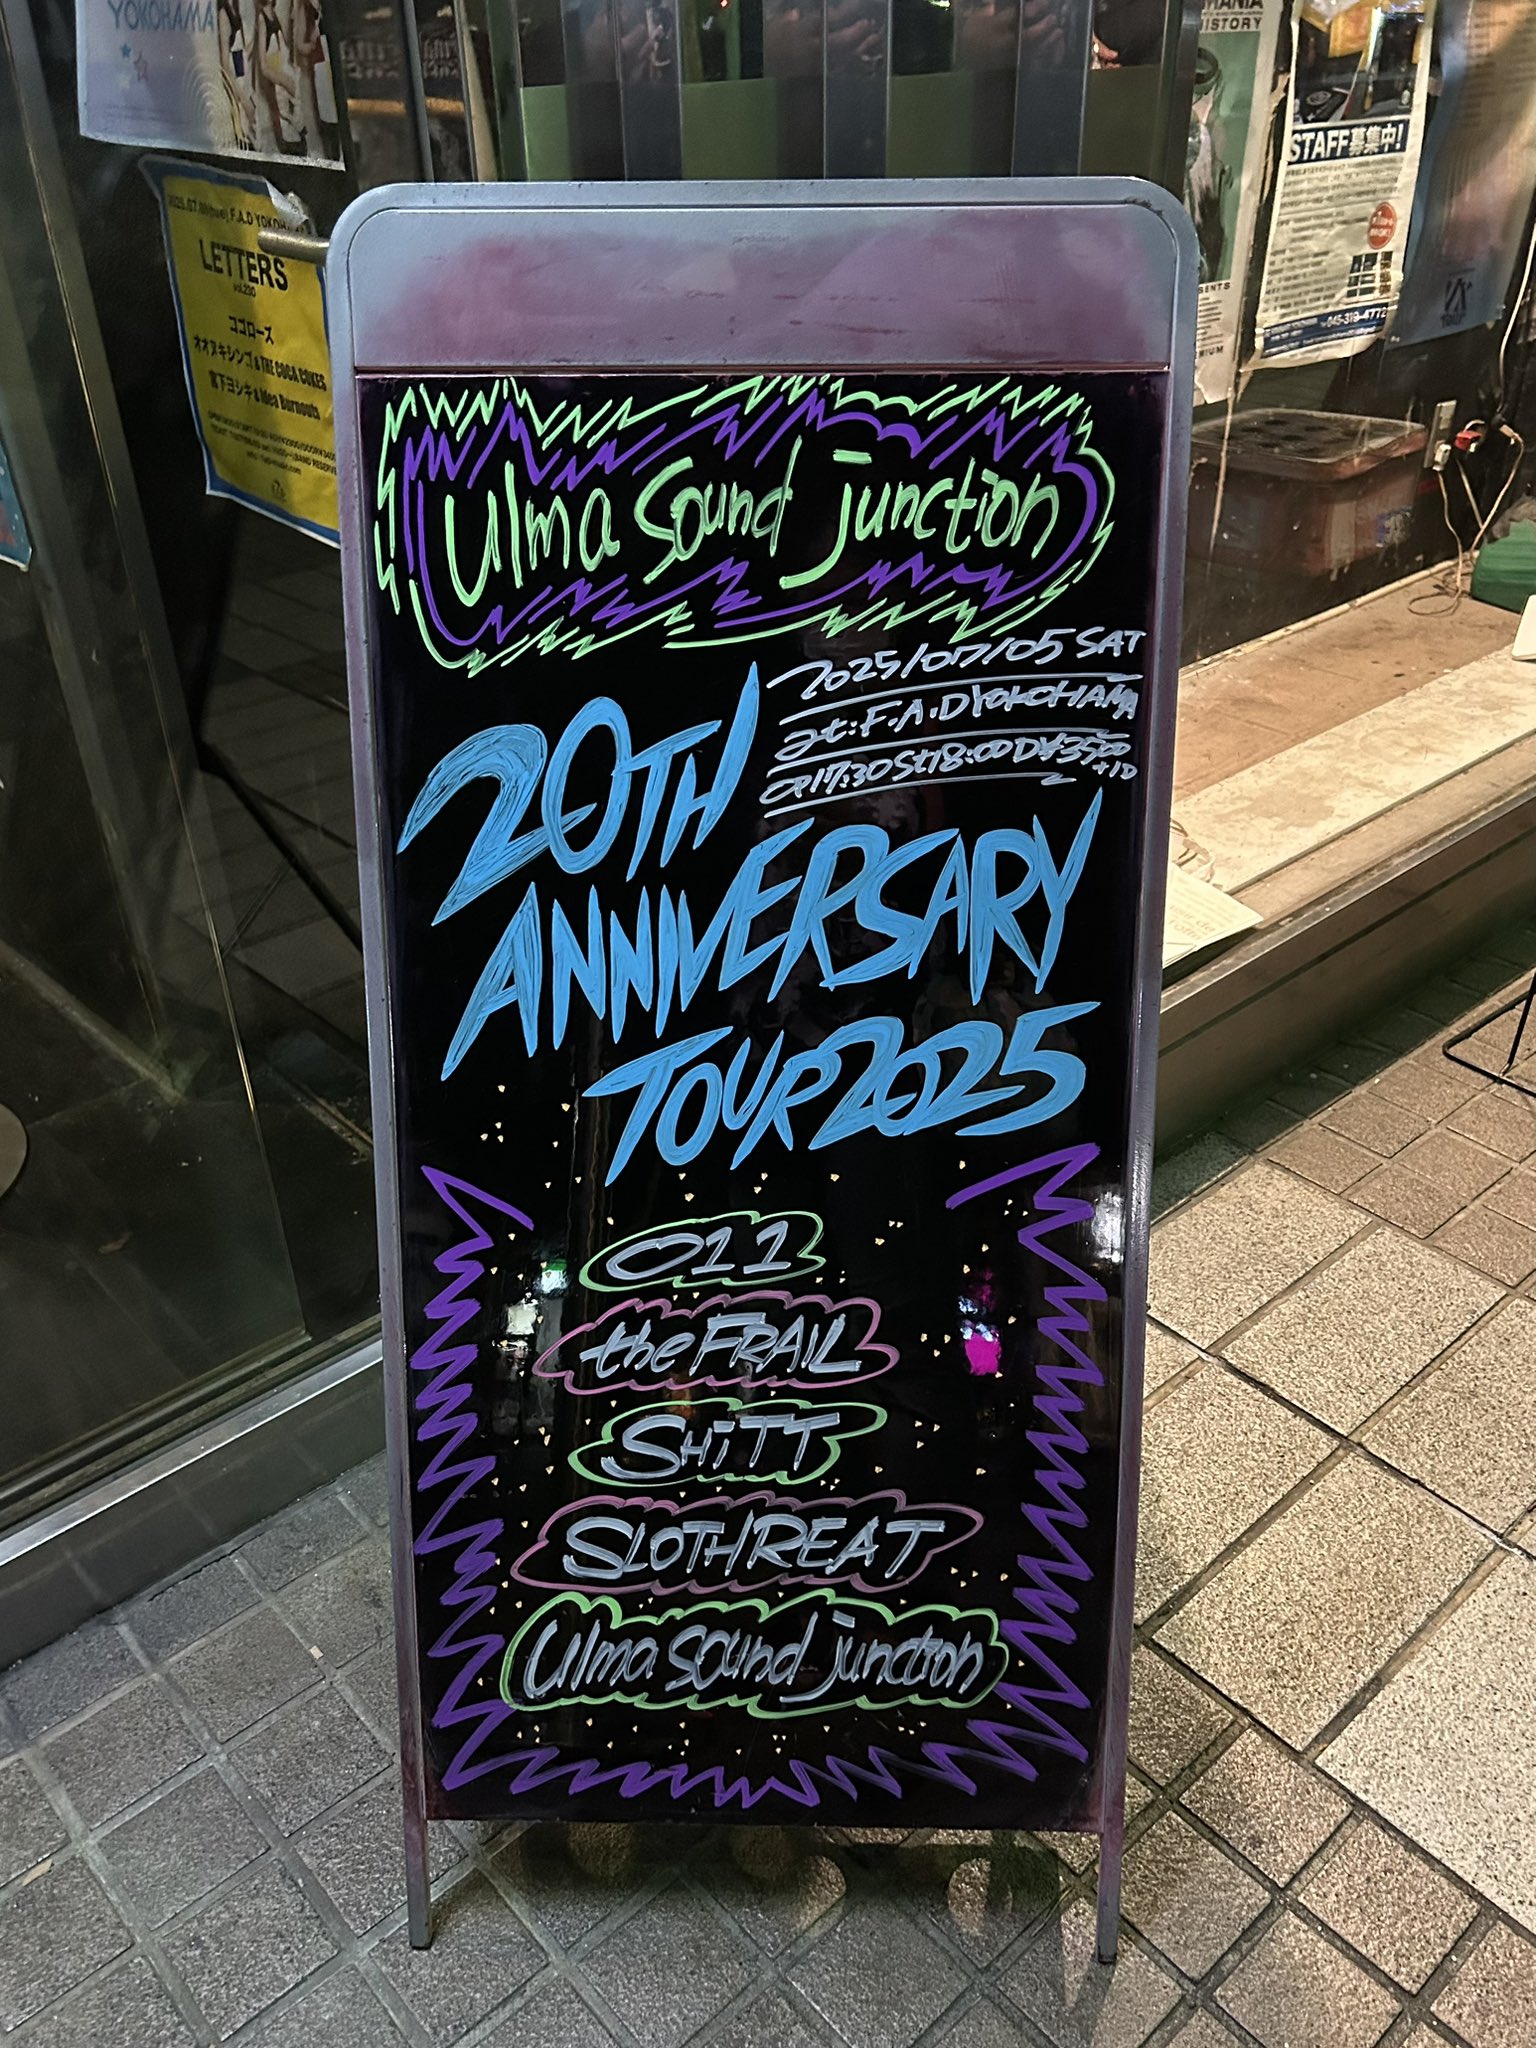 YOKOHAMA
MANIA
HISTORY
STAFF募集中!
045-319-4772
F.A.D YOKOHAMA
LETTERS
vol.230
ココローズ
オオヌキシンゴ & THE COCA COKES
宮下ヨシキ & Idea Burnouts
ulma sound junction
2025/07/05 SAT
at:F.A.D YOKOHAMA
OP17:30 St18:00 D¥3500
+1D
20TH
ANNIVERSARY
TOUR 2025
011
the FRAIL
SHiTT
SLOTHREAT
ulma sound junction